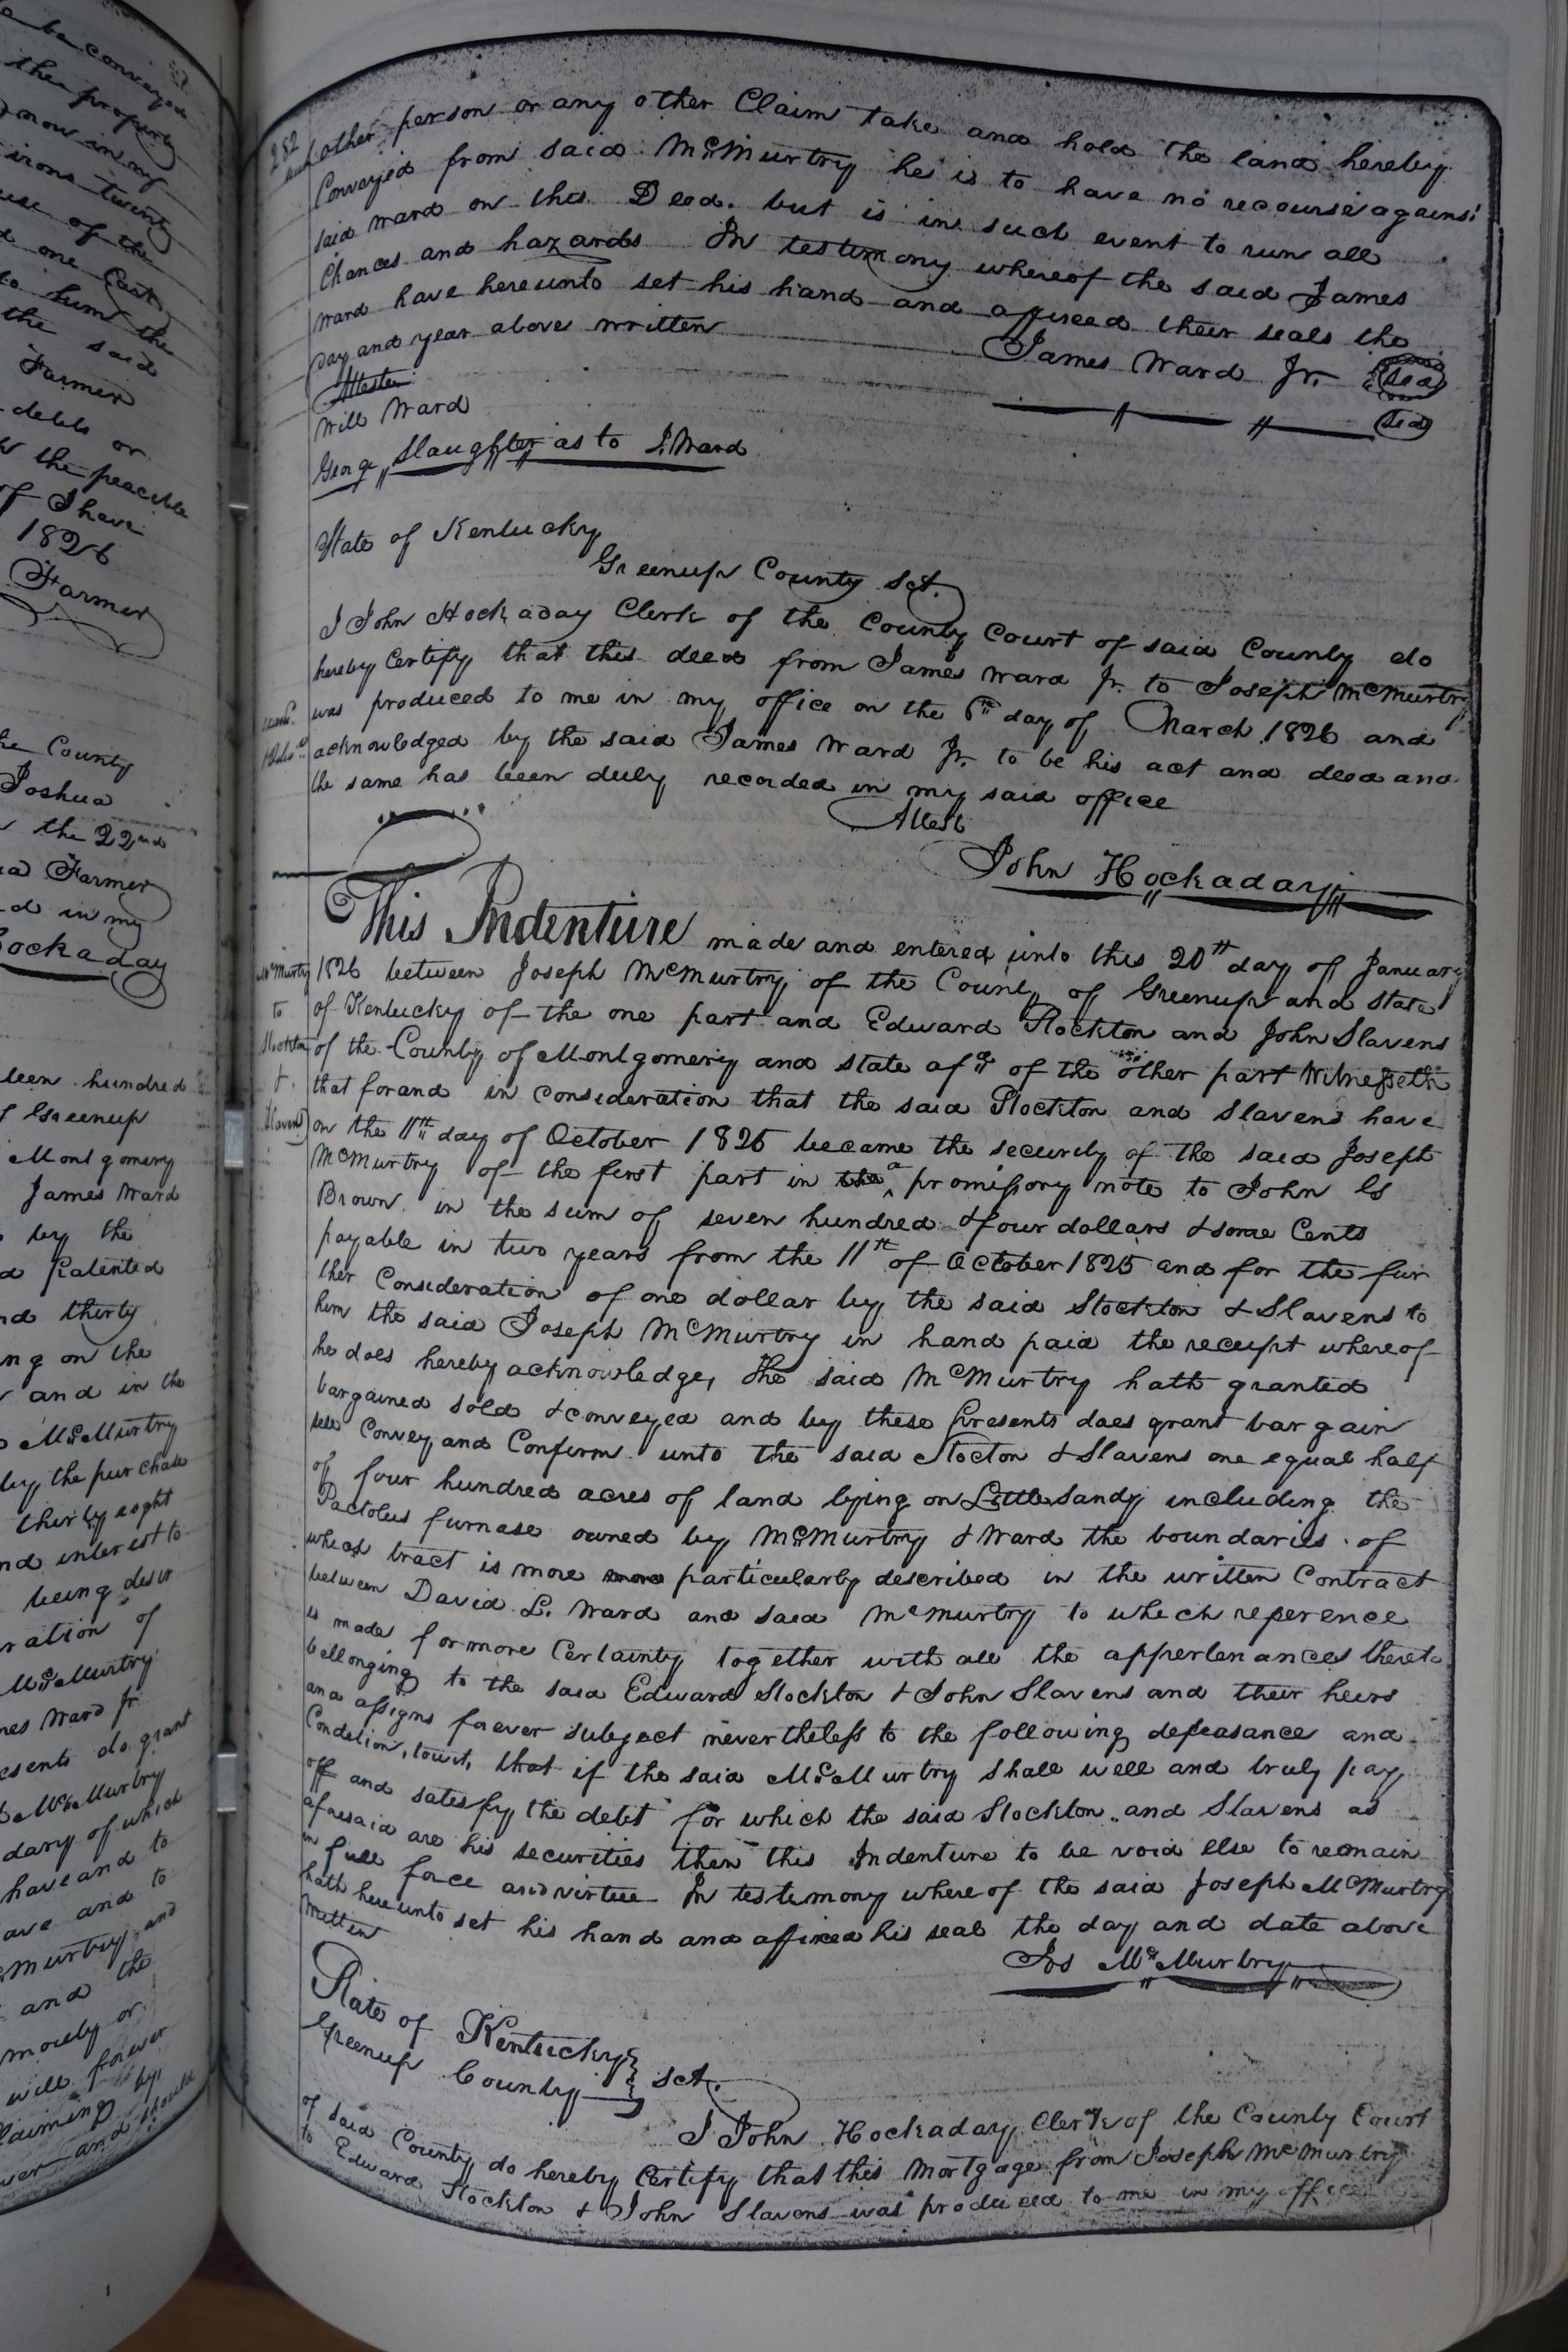 be conveyed
the property
now in my
irons twenty
use of the
d one Cart
to him the
the said
Farmer
debts or
the peacible
of I have
1826
Farmer
the County
Joshua
the 22nd
Farmer
d in my
Hockaday
teen hundred
Greenup
Montgomery
James Ward
by the
d Patented
nd thirty
ng on the
and in the
McMurtry
by the purchase
thirty eight
nd interest to
being desir
ration of
McMurtry
mes Ward Jr
esents do grant
McMurtry
dary of which
have and to
ave and to
McMurtry and
and the
mully or
will forever
laiming by
ver and should
282
other person or any other Claim take and hold the land hereby
Conveyed from said McMurtry he is to have no recourse against
said Ward on this Deed. but is in such event to run all
Chances and hazards In testimony whereof the said James
Ward have hereunto set his hand and affixed their seals the
Day and year above written
James Ward Jr. Seal
Seal
Attested
Will Ward
George Slaughter as to J. Ward
State of Kentucky
Greenup County Sct.
I John Hockaday Clerk of the County Court of said County do
hereby Certify that this deed from James Ward Jr. to Joseph McMurtry
was produced to me in my office on the 6th day of March 1826 and
acknowledged by the said James Ward Jr. to be his act and deed and
the same has been duly recorded in my said office
Attest
John Hockaday
This Indenture made and entered into this 20th day of January
McMurtry
to
Stockton
&
Slavens
1826 between Joseph McMurtry of the County of Greenup and State
of Kentucky of the one part and Edward Stockton and John Slavens
of the County of Montgomery and State afsd of the other part Witnesseth
that for and in consideration that the said Stockton and Slavens have
on the 11th day of October 1825 became the security of the said Joseph
McMurtry of the first part in the a promissory note to John G
Brown in the sum of seven hundred & four dollars & some Cents
payable in two years from the 11th of October 1825 and for the fur
ther Consideration of one dollar by the said Stockton & Slavens to
him the said Joseph McMurtry in hand paid the receipt whereof
he does hereby acknowledge, the said McMurtry hath granted
bargained sold & conveyed and by these Presents does grant bargain
sell Convey and Confirm unto the said Stocton & Slavens one equal half
of four hundred acres of land lying on Little Sandy including the
Pactolus furnase owned by McMurtry & Ward the boundaries of
which tract is more more particularly described in the written Contract
between David L. Ward and said McMurtry to which reference
is made for more Certainty together with all the appertenances thereto
bellonging to the said Edward Stockton & John Slavens and their heirs
and assigns forever subject nevertheless to the following defeasance and
Condition, towit, that if the said McMurtry shall well and truly pay
off and satesfy the debt for which the said Stockton and Slavens as
aforesaid are his securities then this Indenture to be void else to remain
in full force and virtue In testimony whereof the said Joseph McMurtry
hath hereunto set his hand and affixed his seal the day and date above
written
Jos McMurtry
State of Kentucky
Greenup County } sct.
I John Hockaday Clerk of the County Court
of said County do hereby Certify that this Mortgage from Joseph McMurtry
to Edward Stockton & John Slavens was produced to me in my office